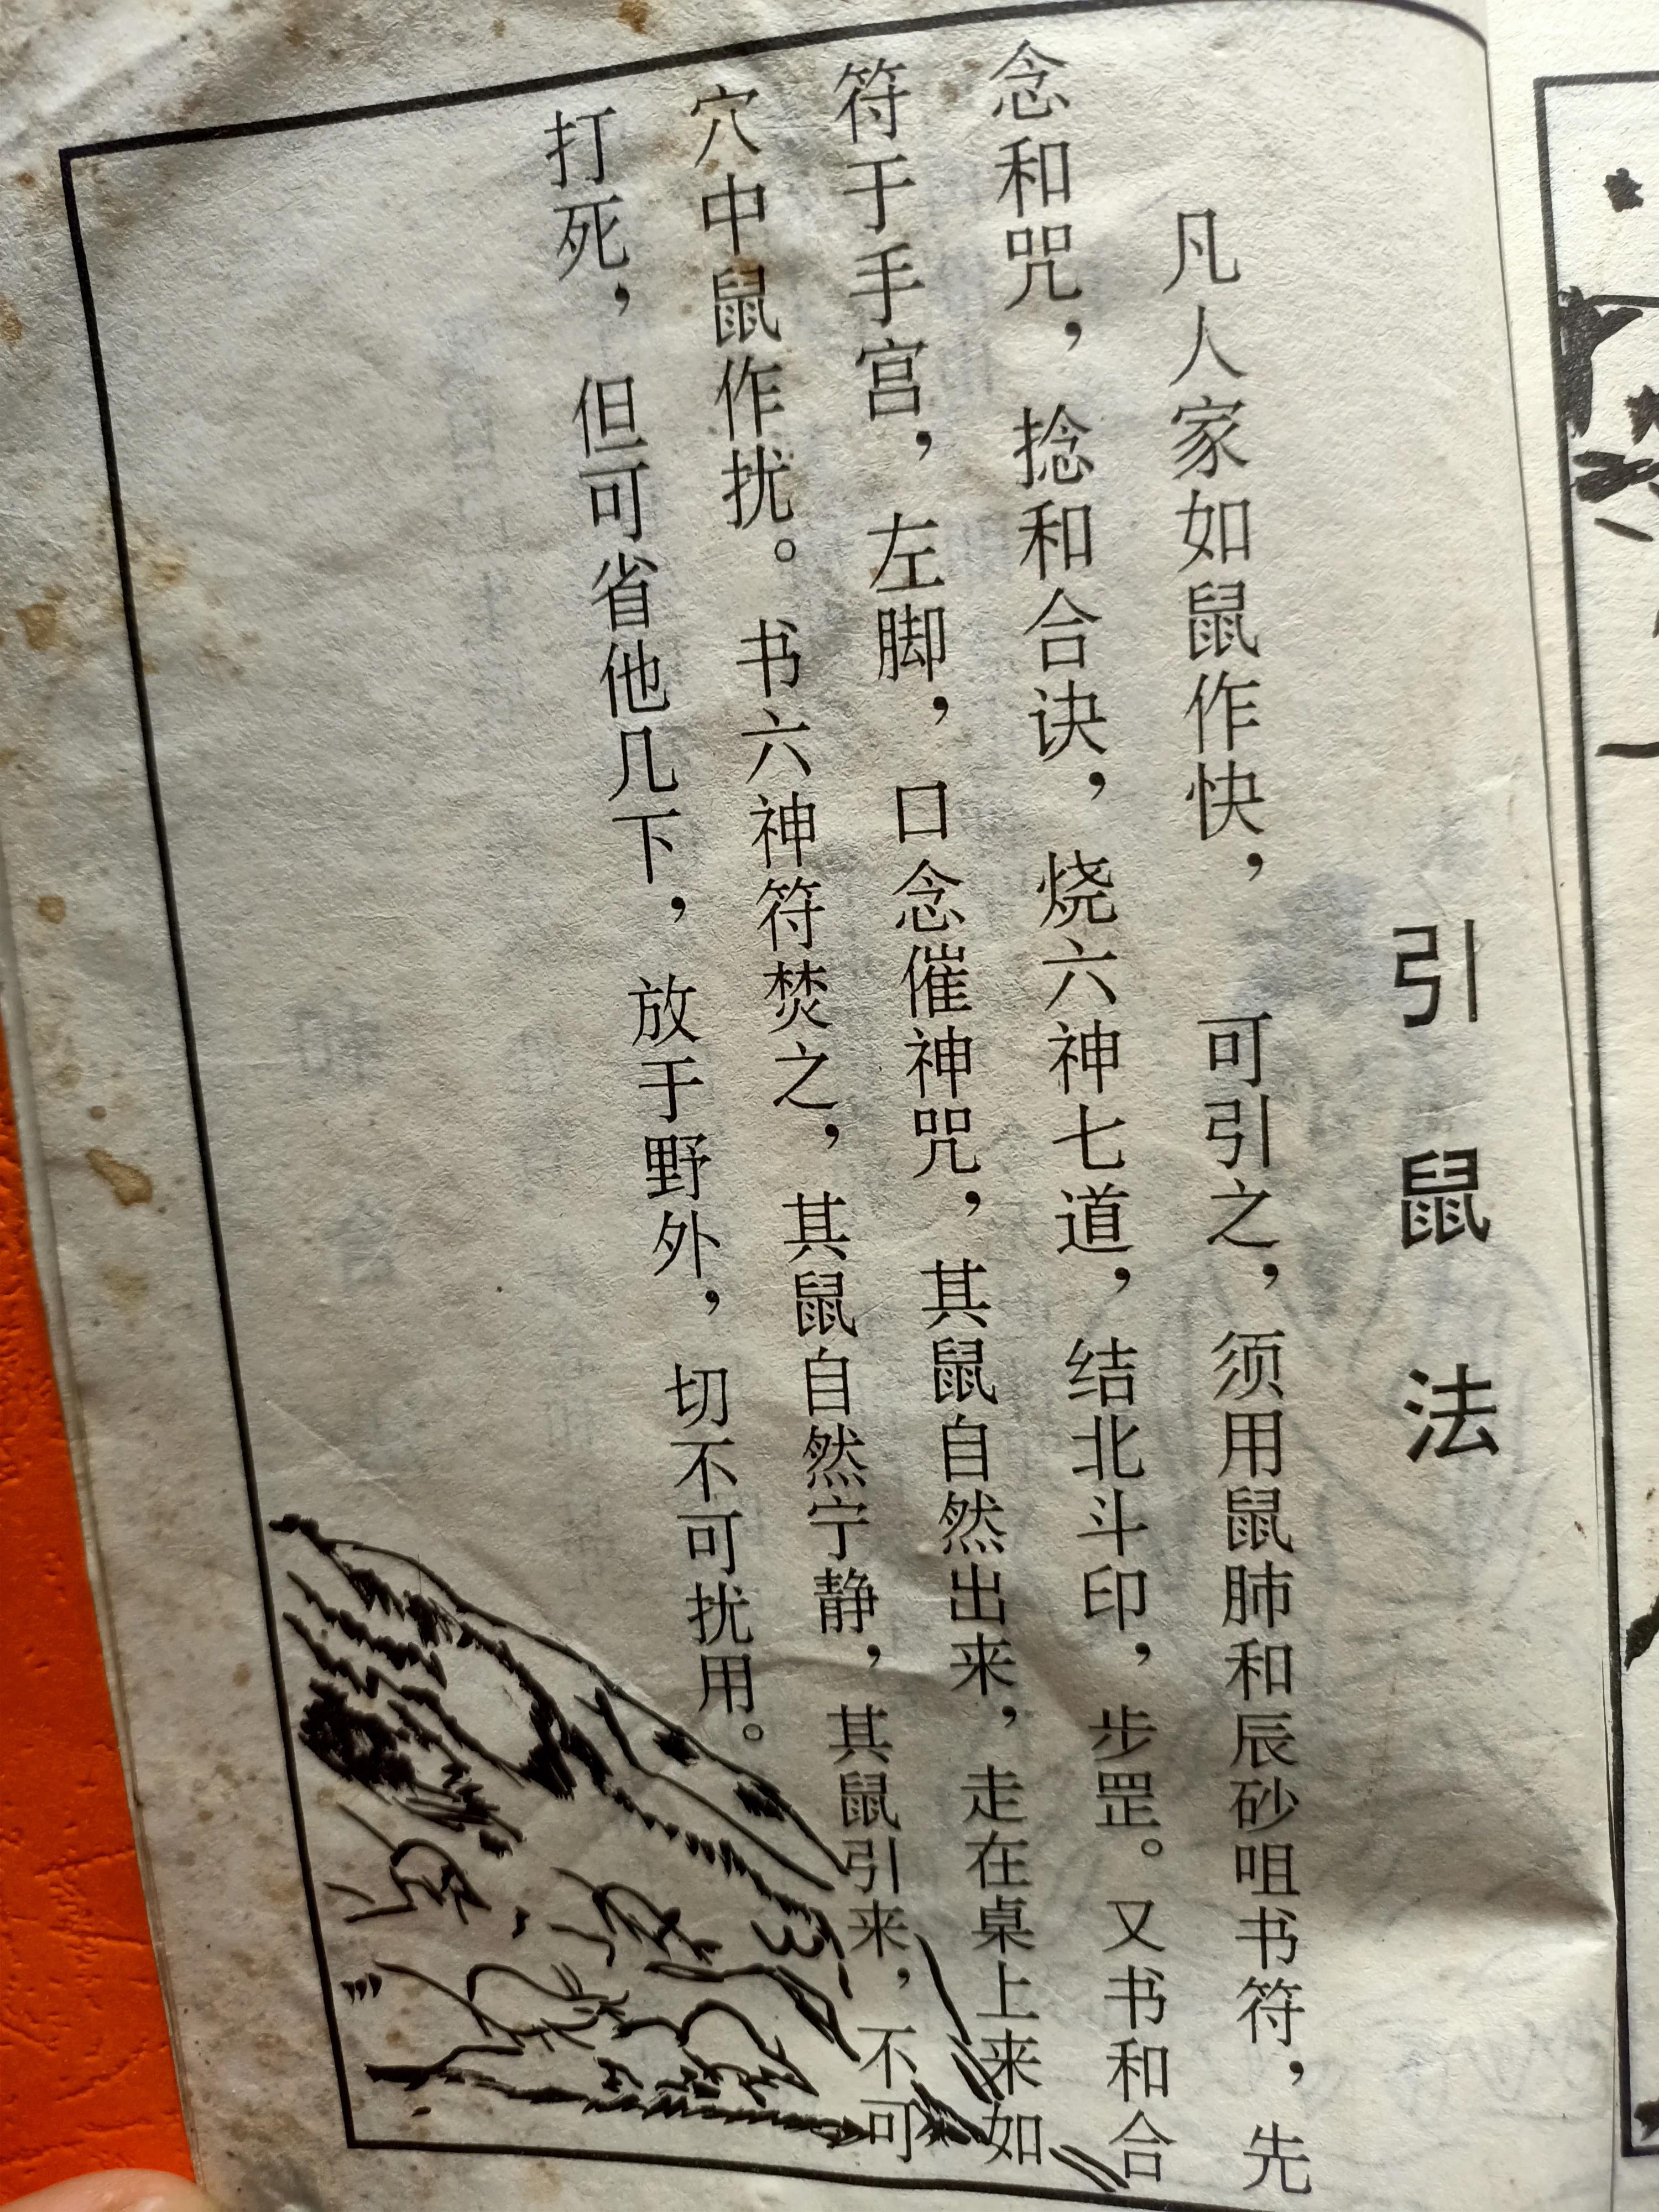 引鼠法
凡人家如鼠作快，可引之，须用鼠肺和辰砂咀书符，先
念和咒，捻和合诀，烧六神七道，结北斗印，步罡。又书和合
符于手宫，左脚，口念催神咒，其鼠自然出来，走在桌上来如
穴中鼠作扰。书六神符焚之，其鼠自然宁静，其鼠引来，不可
打死，但可省他几下，放于野外，切不可扰用。